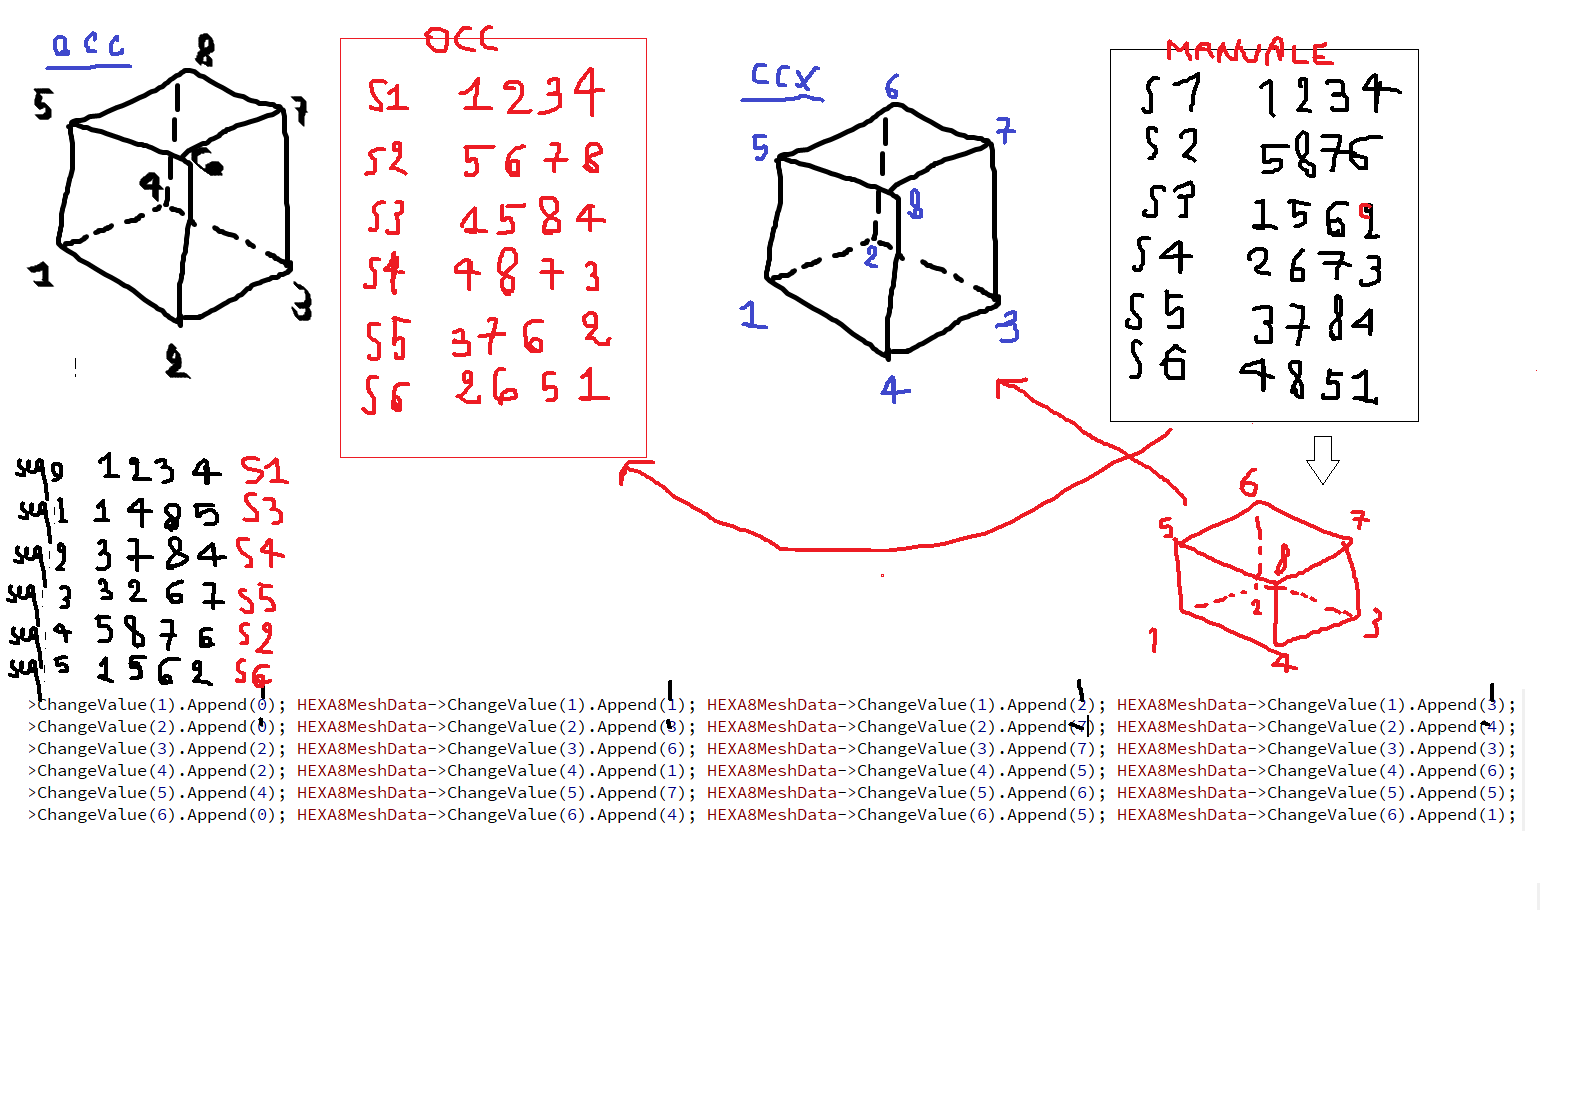 OCC
8
5
7
6
4
1
3
2
OCC
S1 1 2 3 4
S2 5 6 7 8
S3 1 5 8 4
S4 4 8 7 3
S5 3 7 6 2
S6 2 6 5 1
CCX
6
7
5
8
2
1
3
4
MANUALE
S1 1 2 3 4
S2 5 8 7 6
S3 1 5 6 2
S4 2 6 7 3
S5 3 7 8 4
S6 4 8 5 1
6
5
7
8
2
1
3
4
seq 0 1 2 3 4 S1
seq 1 1 4 8 5 S3
seq 2 3 7 8 4 S4
seq 3 3 2 6 7 S5
seq 4 5 8 7 6 S2
seq 5 1 5 6 2 S6
>ChangeValue(1).Append(0); HEXA8MeshData->ChangeValue(1).Append(1); HEXA8MeshData->ChangeValue(1).Append(2); HEXA8MeshData->ChangeValue(1).Append(3);
>ChangeValue(2).Append(0); HEXA8MeshData->ChangeValue(2).Append(3); HEXA8MeshData->ChangeValue(2).Append(7); HEXA8MeshData->ChangeValue(2).Append(4);
>ChangeValue(3).Append(2); HEXA8MeshData->ChangeValue(3).Append(6); HEXA8MeshData->ChangeValue(3).Append(7); HEXA8MeshData->ChangeValue(3).Append(3);
>ChangeValue(4).Append(2); HEXA8MeshData->ChangeValue(4).Append(1); HEXA8MeshData->ChangeValue(4).Append(5); HEXA8MeshData->ChangeValue(4).Append(6);
>ChangeValue(5).Append(4); HEXA8MeshData->ChangeValue(5).Append(7); HEXA8MeshData->ChangeValue(5).Append(6); HEXA8MeshData->ChangeValue(5).Append(5);
>ChangeValue(6).Append(0); HEXA8MeshData->ChangeValue(6).Append(4); HEXA8MeshData->ChangeValue(6).Append(5); HEXA8MeshData->ChangeValue(6).Append(1);